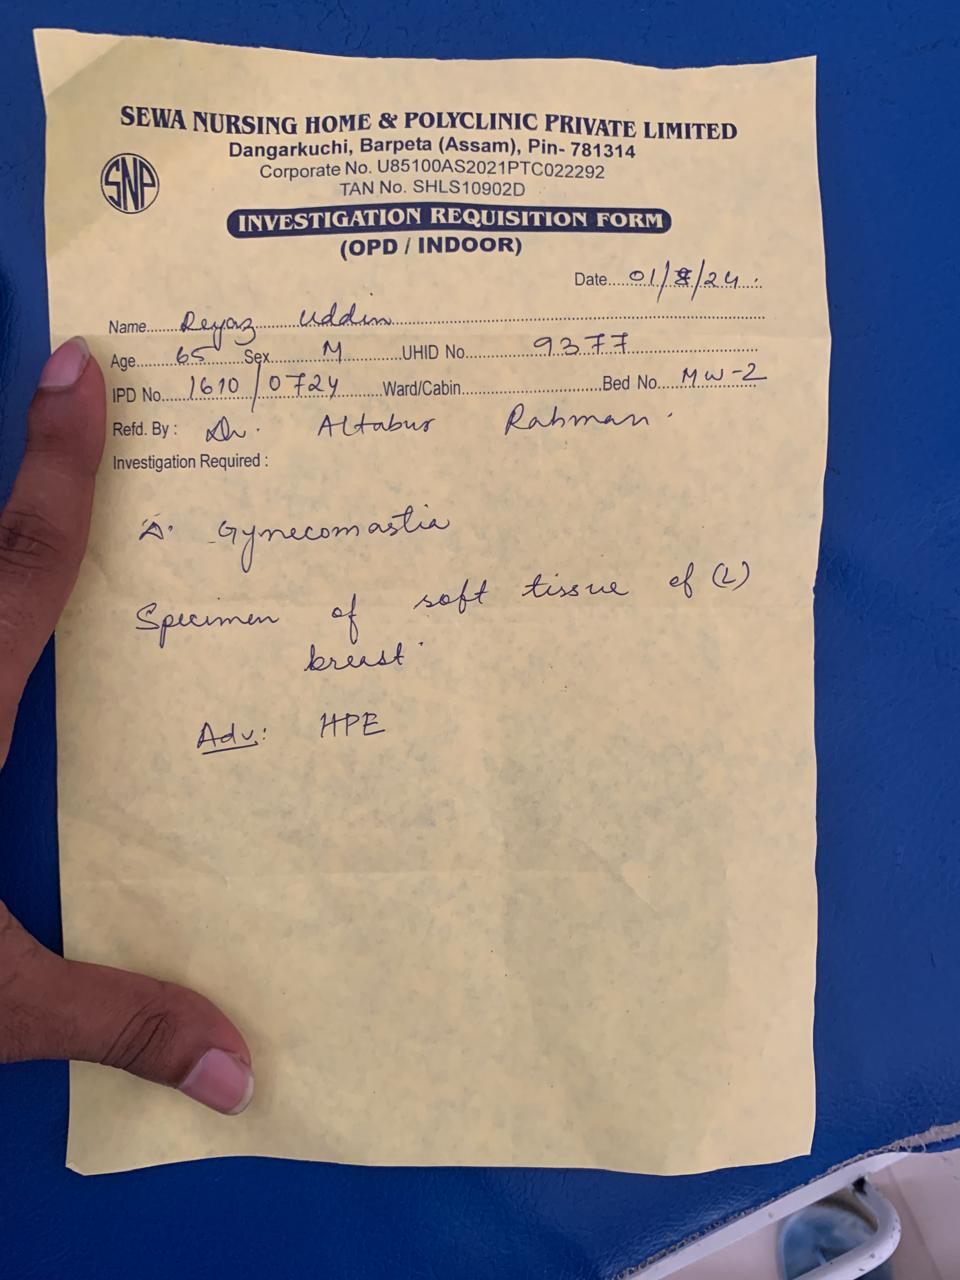 SEWA NURSING HOME & POLYCLINIC PRIVATE LIMITED
Dangarkuchi, Barpeta (Assam), Pin- 781314
Corporate No. U85100AS2021PTC022292
TAN No. SHLS10902D
SNP
INVESTIGATION REQUISITION FORM
(OPD / INDOOR)
Date....01/8/24
Name......Reyaz Uddin
Age 65 Sex M UHID No. 9377
IPD No. 1610/0724 Ward/Cabin Bed No. MW-2
Refd. By : Dr. Altabur Rahman.
Investigation Required :
Gynecomastia
Specimen of soft tissue of (L)
breast
Adv: HPE